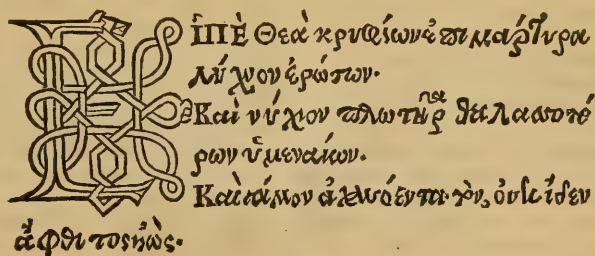 ΕἸΠῈ Θεὰ κρυφίων ἐπιμάρτυρα
λύχνον ἐρώτων.
Καὶ νύχιον πλωτῆρα θαλασσοπό
ρων ὑμεναίων.
Καὶ γάμον ἀχλυόεντα τὸν, οὐκ ἴδεν
ἄφθιτος ἠώς.